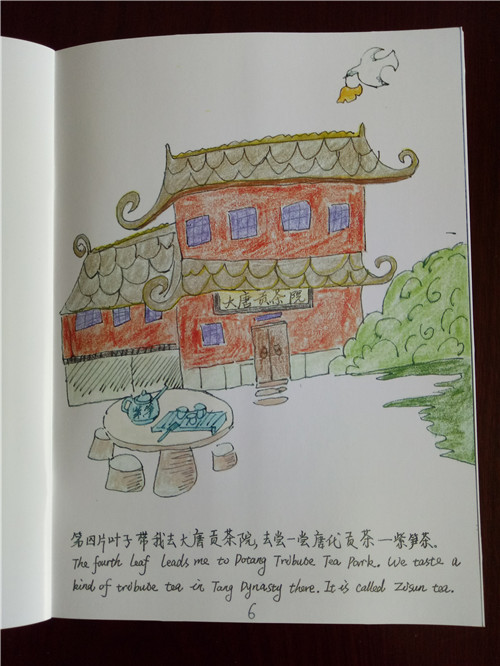 大唐贡茶院
第四片叶子带我去大唐贡茶院,去尝一尝唐代贡茶—紫笋茶.
The fourth leaf leads me to Datang Trobuse Tea Park. We taste a
kind of trobuse tea in Tang Dynasty there. It is called Zisun tea.
6